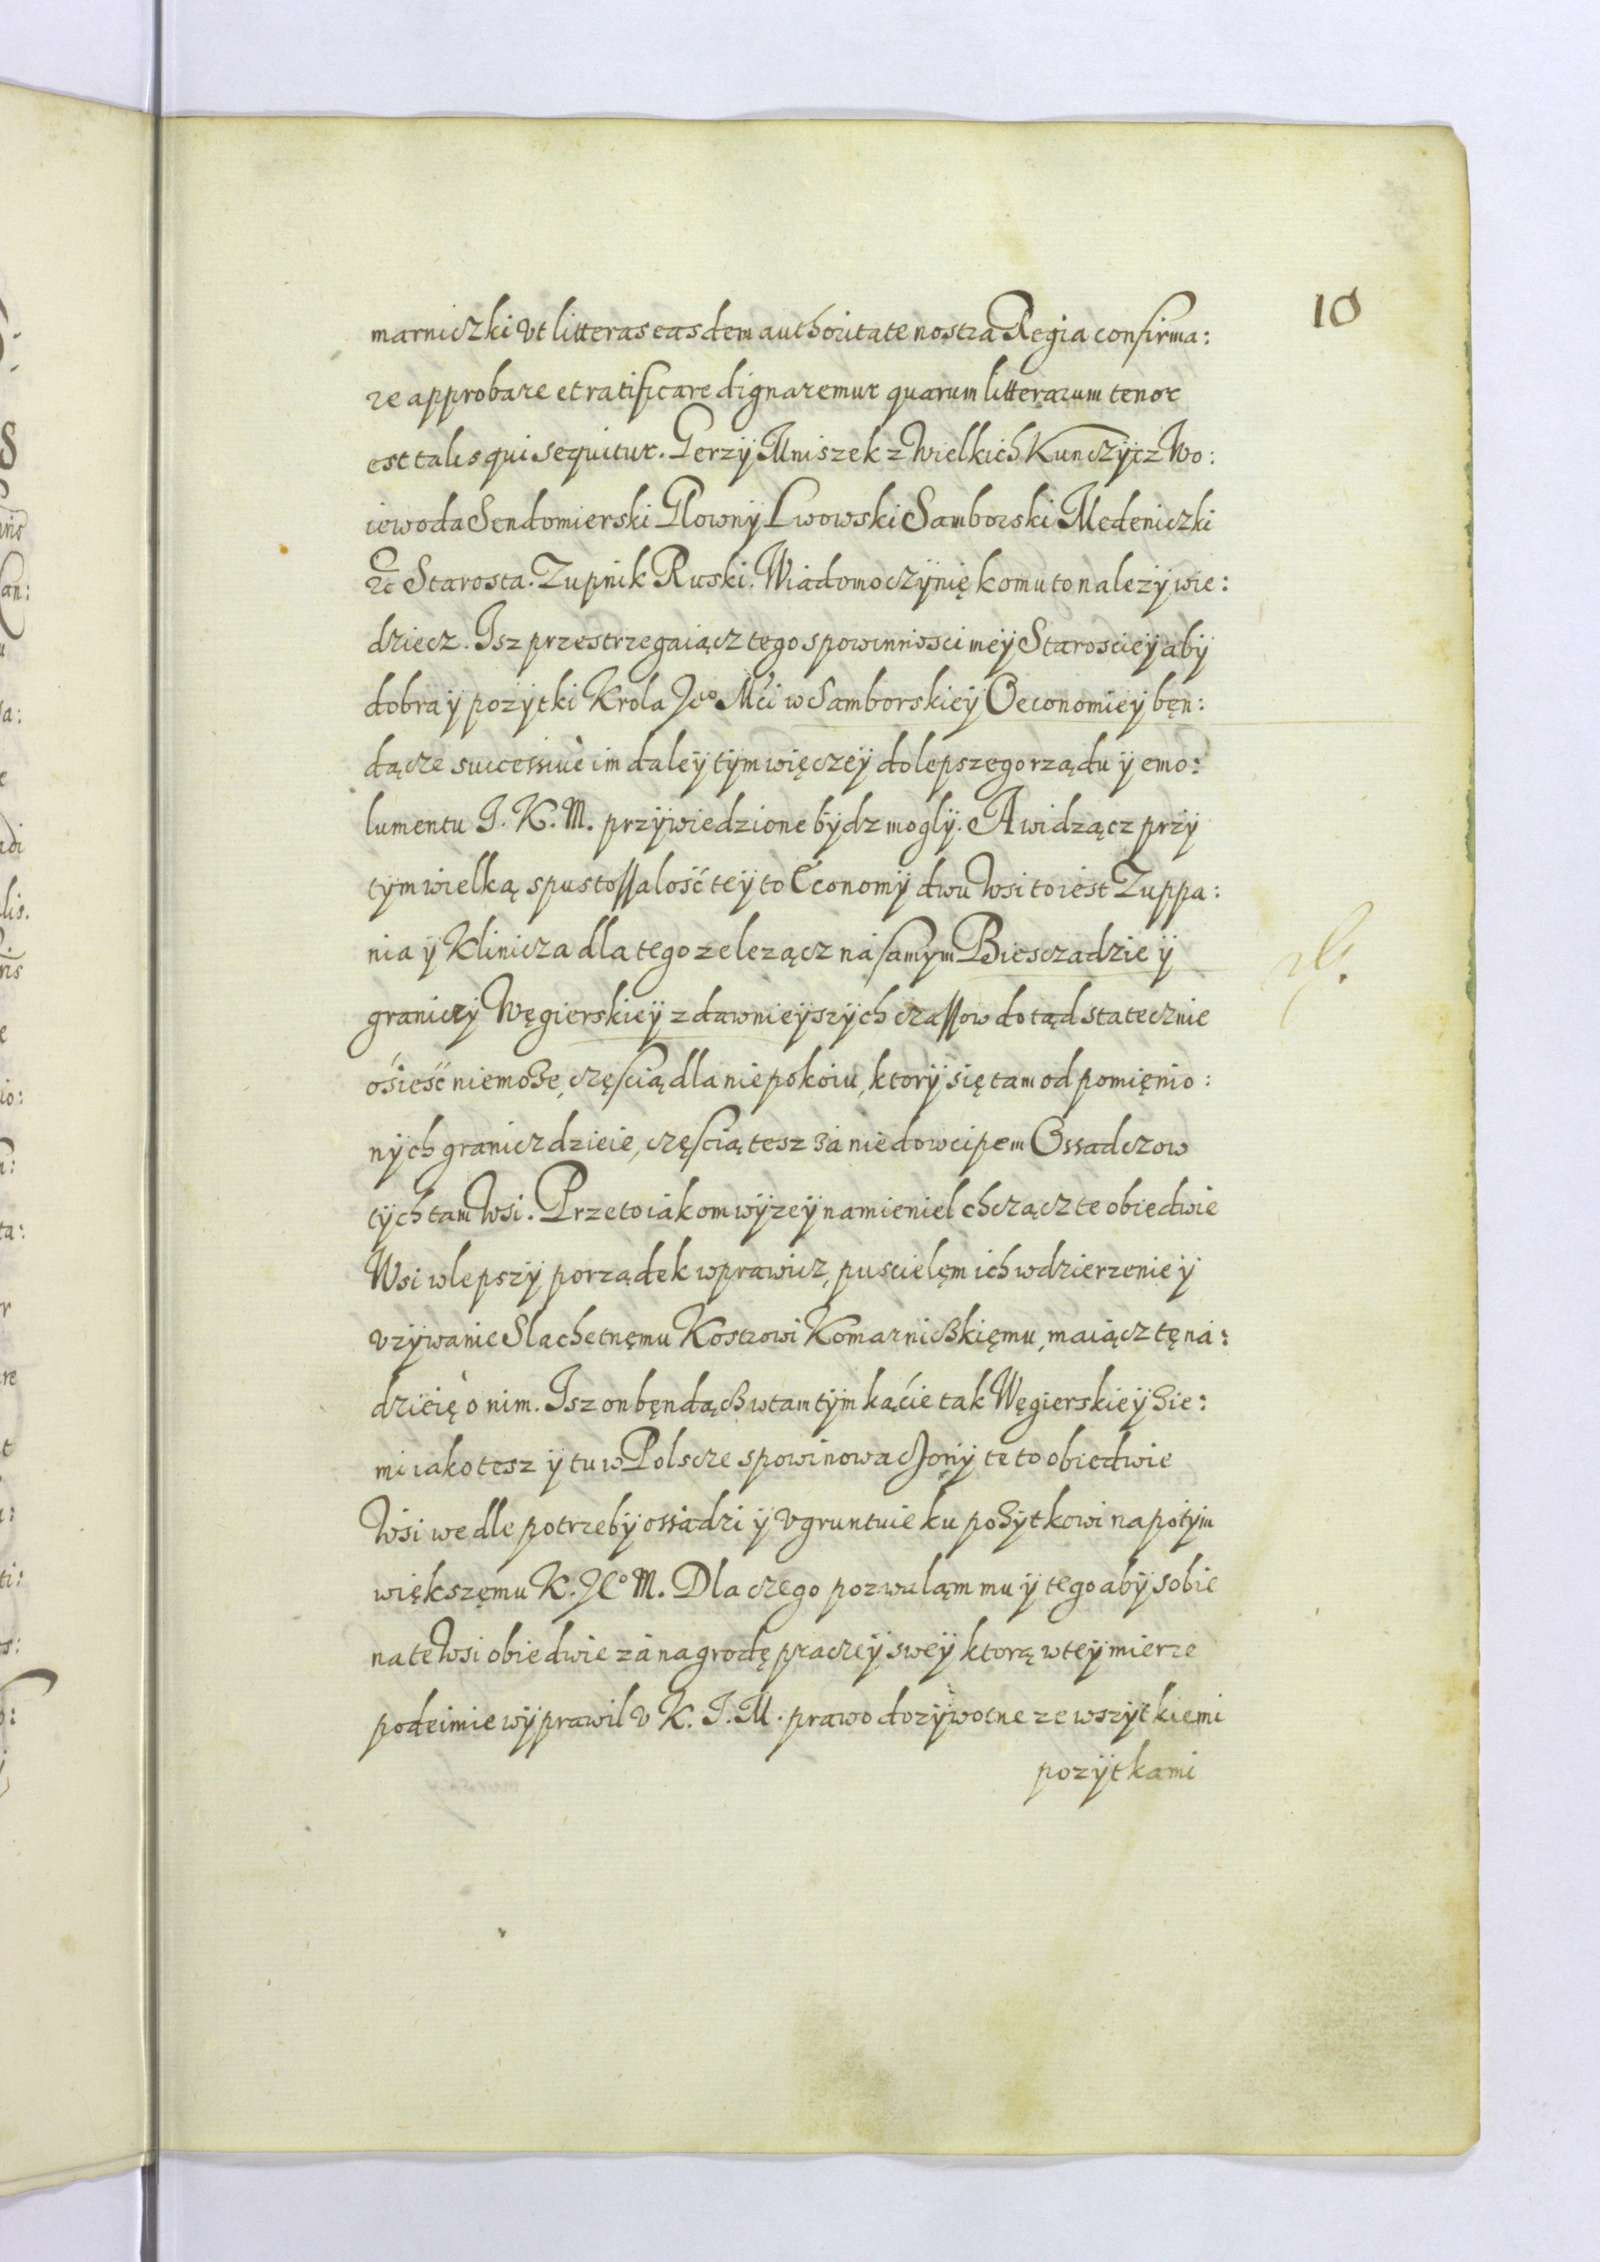 10
marniczki vt litteras easdem authoritate nostra Regia confirma:
re approbare et ratificare dignaremur quarum litterarum tenor
est talis qui sequitur. Gerzÿ Mniszek z Wielkich Kunczÿcz Wo:
iewoda Sendomierski Glownÿ Lwowski Samborski Medeniczki
etc Starosta. Zupnik Ruski. Wiadomo czÿnię komu to nalezÿ wie:
dziecz. Isz przestrzegaiącz tego s powinnosci meÿ Starosciey abÿ
dobra ÿ pozÿtki Krola Jeo Mći w Samborskieÿ Oeconomieÿ bęn:
dącze successiuè im daleÿ tÿm więczeÿ do lepszego rządu ÿ emo:
lumentu J. K. M. przÿwiedzione bÿdz moglÿ. A widzącz przÿ
tÿm wielką spustoſſalość teÿ to Economÿ dwu Wsi to iest Zuppa:
nia ÿ Klinicza dla tego ze lezącz na samÿm Biesczadzie ÿ
graniczÿ Węgierskieÿ z dawnieÿszÿch czaſſow dotąd statecznie
ośieść niemoże, częſcią dla niepokoiu, ktorÿ się tam od pomięnio:
nÿch granicz dzieie, częſcią tesz za niedowcipem Ossadczow
tÿch tam Wsi. Przeto iakom wÿzeÿ namieniel chcząćz te obiedwie
Wsi w lepszÿ porządek wprawicz, puscielęm ich w dzierzenie ÿ
vzÿwanie Slachetnęmu Kostrowi Komarnißkięmu, maiącz tę na:
dzieię o nim. Isz on bęndąß w tam tÿm kąćie tak Węgierskieÿ Zie:
mi iako tesz ÿ tu w Polscze spowinowaczonÿ te to obiedwie
Wsi wedle potrzebÿ ossadzi ÿ vgruntuie ku pożÿtkowi na potÿm
większęmu K. Jeo M. Dla czego pozwaląm mu ÿ tego abÿ sobie
na te Wsi obiedwie za nagrodę praczeÿ sweÿ ktorą w teÿ mierze
podeimie wÿprawil v K. J. M. prawo dozÿwotne ze wszÿtkiemi
pozÿtkami